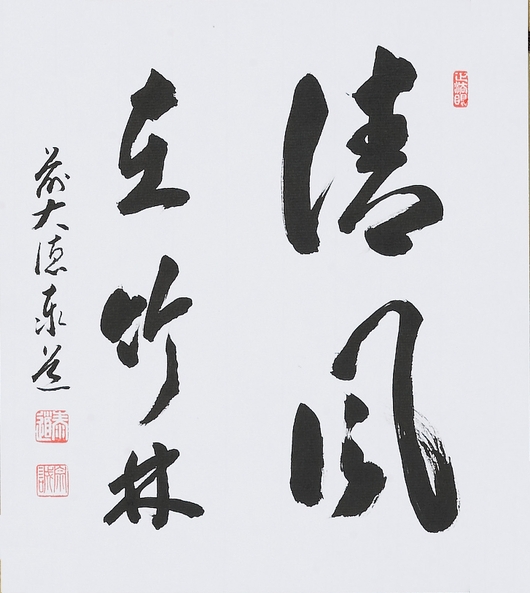 清風
在竹林
前大徳泰道